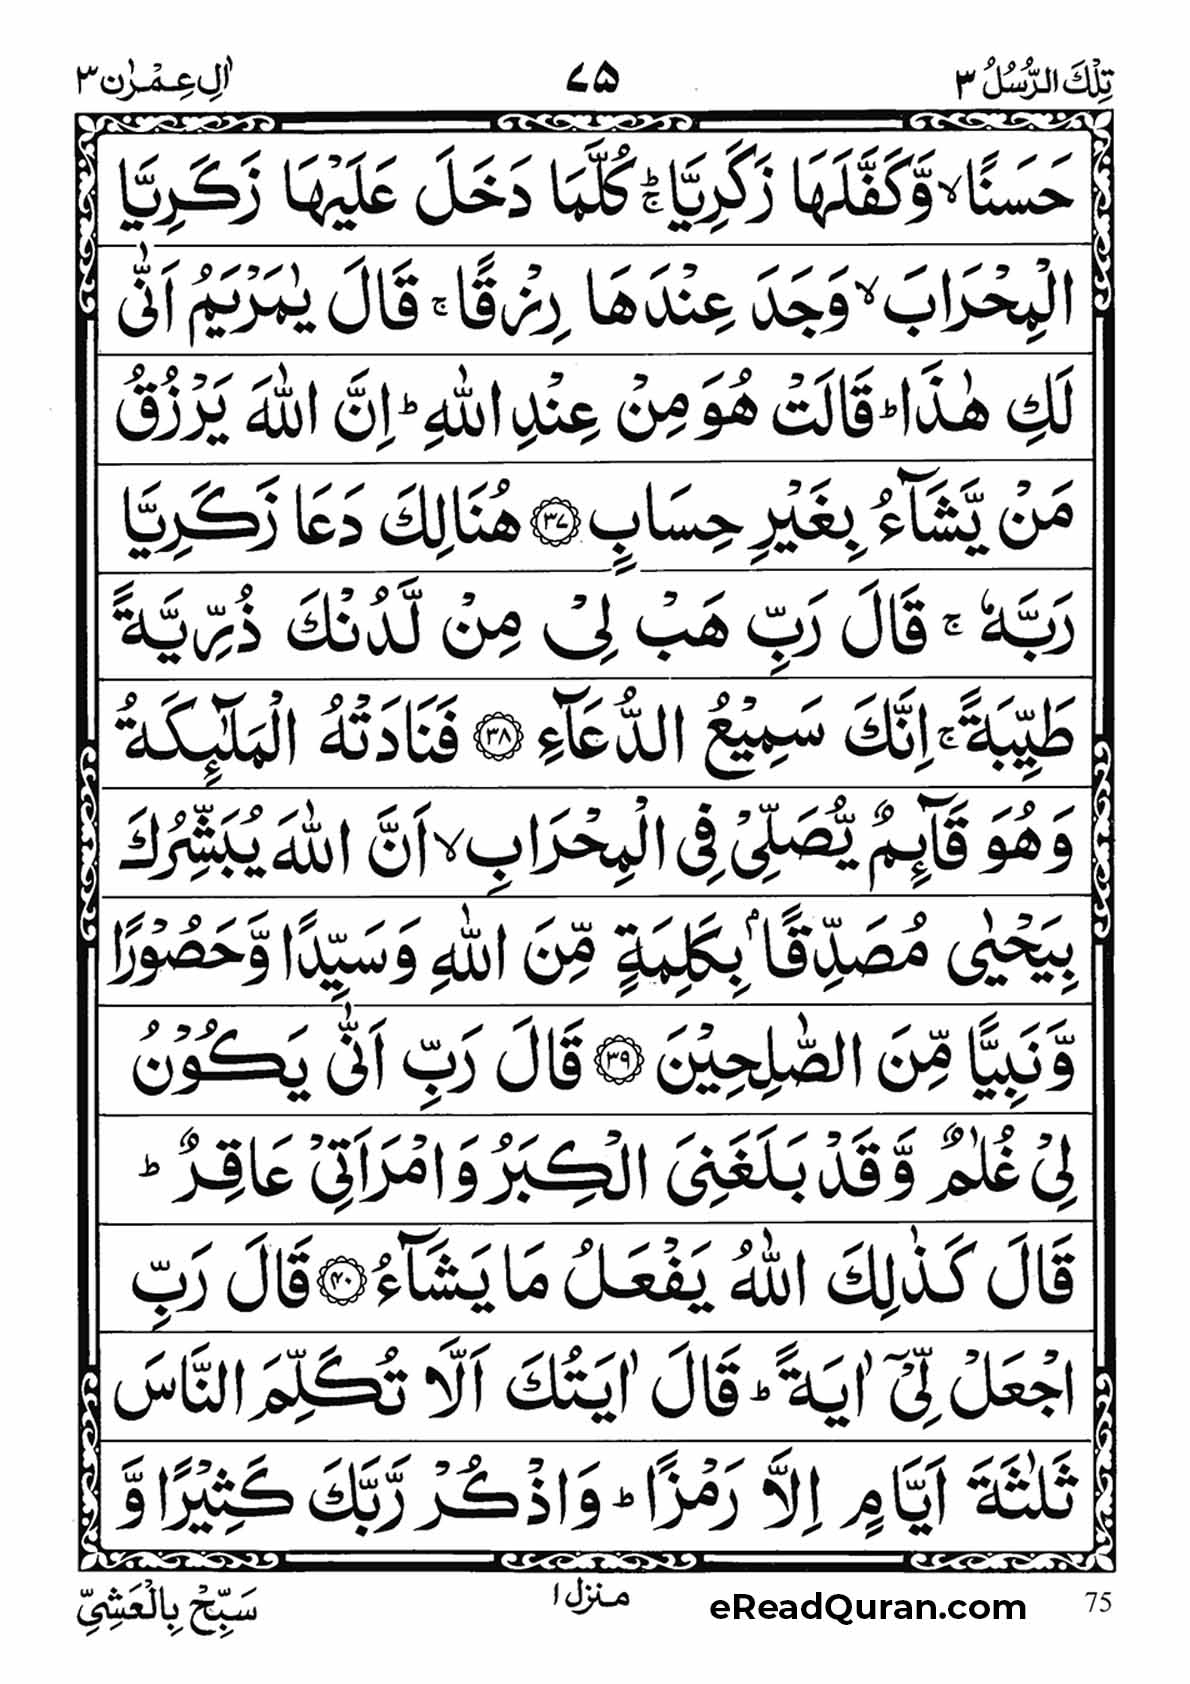 تِلْكَ الرُّسُلُ ٣ ٧٥ اٰلِ عِمْرٰن ٣
حَسَنًا ۙ وَّكَفَّلَهَا زَكَرِيَّا ۚؕ كُلَّمَا دَخَلَ عَلَيْهَا زَكَرِيَّا
الْمِحْرَابَ ۙ وَجَدَ عِنْدَهَا رِزْقًا ۚ قَالَ يٰمَرْيَمُ اَنّٰى
لَكِ هٰذَا ؕ قَالَتْ هُوَ مِنْ عِنْدِ اللّٰهِ ؕ اِنَّ اللّٰهَ يَرْزُقُ
مَنْ يَّشَآءُ بِغَيْرِ حِسَابٍ ﴿٣٧﴾ هُنَالِكَ دَعَا زَكَرِيَّا
رَبَّهٗ ۚ قَالَ رَبِّ هَبْ لِىْ مِنْ لَّدُنْكَ ذُرِّيَّةً
طَيِّبَةً ۚ اِنَّكَ سَمِيْعُ الدُّعَآءِ ﴿٣٨﴾ فَنَادَتْهُ الْمَلٰٓئِكَةُ
وَهُوَ قَآئِمٌ يُّصَلِّىْ فِى الْمِحْرَابِ ۙ اَنَّ اللّٰهَ يُبَشِّرُكَ
بِيَحْيٰى مُصَدِّقًاۢ بِكَلِمَةٍ مِّنَ اللّٰهِ وَسَيِّدًا وَّحَصُوْرًا
وَّنَبِيًّا مِّنَ الصّٰلِحِيْنَ ﴿٣٩﴾ قَالَ رَبِّ اَنّٰى يَكُوْنُ
لِىْ غُلٰمٌ وَّقَدْ بَلَغَنِىَ الْكِبَرُ وَامْرَاَتِىْ عَاقِرٌ ؕ
قَالَ كَذٰلِكَ اللّٰهُ يَفْعَلُ مَا يَشَآءُ ﴿٤٠﴾ قَالَ رَبِّ
اجْعَلْ لِّىْٓ اٰيَةً ؕ قَالَ اٰيَتُكَ اَلَّا تُكَلِّمَ النَّاسَ
ثَلٰثَةَ اَيَّامٍ اِلَّا رَمْزًا ؕ وَاذْكُرْ رَّبَّكَ كَثِيْرًا وَّ
سَبِّحْ بِالْعَشِىِّ منزل ١ eReadQuran.com 75